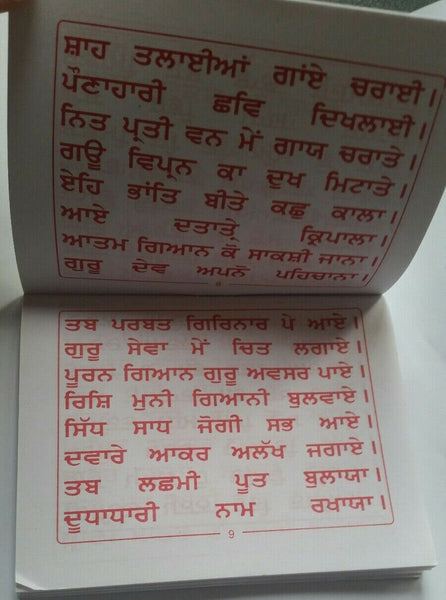 ਸ਼ਾਹ ਤਲਾਈਆਂ ਗਾਂਏ ਚਰਾਈ।
ਪੌਣਾਹਾਰੀ ਛਵਿ ਦਿਖਲਾਈ।
ਨਿਤ ਪ੍ਰਤੀ ਵਨ ਮੇਂ ਗਾਯ ਚਰਾਤੇ।
ਗਊ ਵਿਪ੍ਰਨ ਕਾ ਦੁਖ ਮਿਟਾਤੇ।
ਏਹਿ ਭਾਂਤਿ ਬੀਤੇ ਕਛੁ ਕਾਲਾ।
ਆਏ ਦਤਾਤ੍ਰੇ ਕ੍ਰਿਪਾਲਾ।
ਆਤਮ ਗਿਆਨ ਕੋ ਸਾਕਸ਼ੀ ਜਾਨਾ।
ਗੁਰੂ ਦੇਵ ਅਪਨੋ ਪਹਿਚਾਨਾ।
8
ਤਬ ਪਰਬਤ ਗਿਰਿਨਾਰ ਪੇ ਆਏ।
ਗੁਰੂ ਸੇਵਾ ਮੇਂ ਚਿਤ ਲਗਾਏ।
ਪੂਰਨ ਗਿਆਨ ਗੁਰੂ ਅਵਸਰ ਪਾਏ।
ਰਿਸ਼ਿ ਮੁਨੀ ਗਿਆਨੀ ਬੁਲਵਾਏ।
ਸਿੱਧ ਸਾਧ ਜੋਗੀ ਸਭ ਆਏ।
ਦਵਾਰੇ ਆਕਰ ਅਲੱਖ ਜਗਾਏ।
ਤਬ ਲਛਮੀ ਪੂਤ ਬੁਲਾਯਾ।
ਦੂਧਾਧਾਰੀ ਨਾਮ ਰਖਾਯਾ।
9